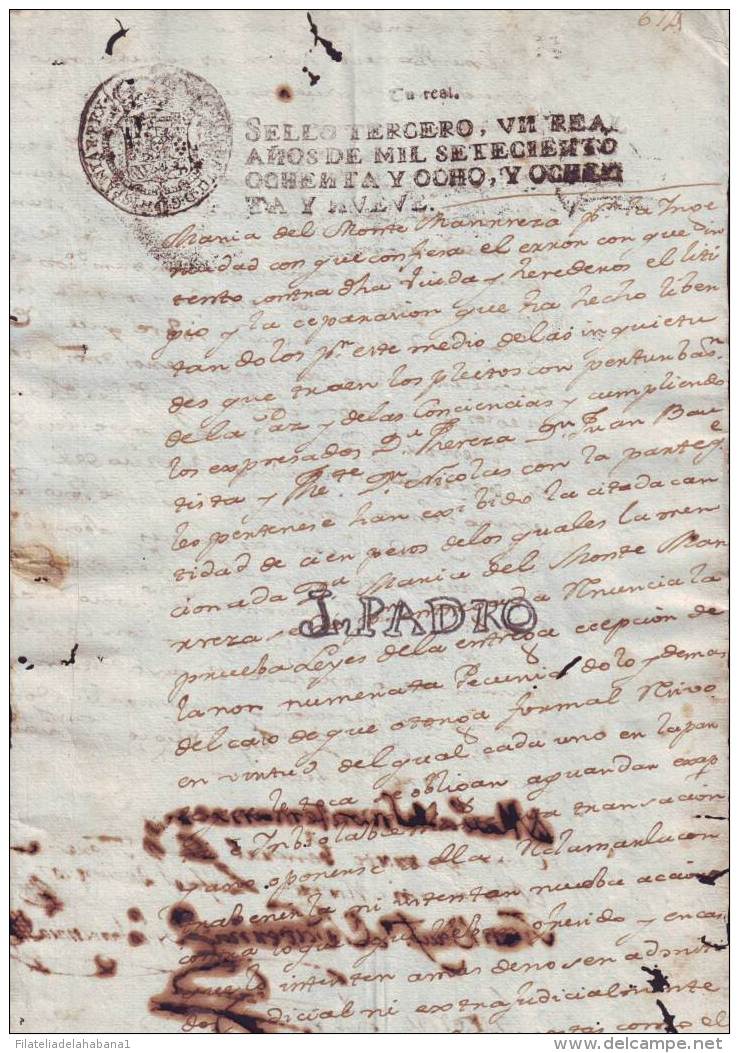 61
Un real.
SELLO TERCERO, VN REAL
AÑOS DE MIL SETECIENTO
OCHENTA Y OCHO, Y OCHEN
TA Y NUEVE.
Maria del Monte Manrreza pr. la Inge
nuidad con que confiesa el error con que in
tento contra dha Viuda y herederos el liti
gio y la separasion que ha hecho liber
tandolos pr. este medio de las inquietu
des que traen los pleitos con perturbasn.
de la Paz y de las Conciencias y cumpliendo
los expresados Da. Thereza Dn. Juan Bau
tista y The. Dn. Nicolas con la parte qe.
les pertenese han exibido la citada can
tidad de cien pesos de los quales la men
cionada Da. Maria del Monte Man
rreza se
J. PADRO
da Renuncia la
prueba Leyes de la entrega ecepcion de
la non numerata Pecunia dolo y demas
del caso de que otorga formal Resivo
en virtud del qual cada uno en la par
te toca se obligan aguardar
transacion
y a no oponerse a ella Reclamarla con
trabenerla ni intentar nueba accion
contra lo que
referido y en ca
que lo intenten a mas de no ser admiti
dos judicial ni extrajudicialmente
como el
Filateliadelahabana1